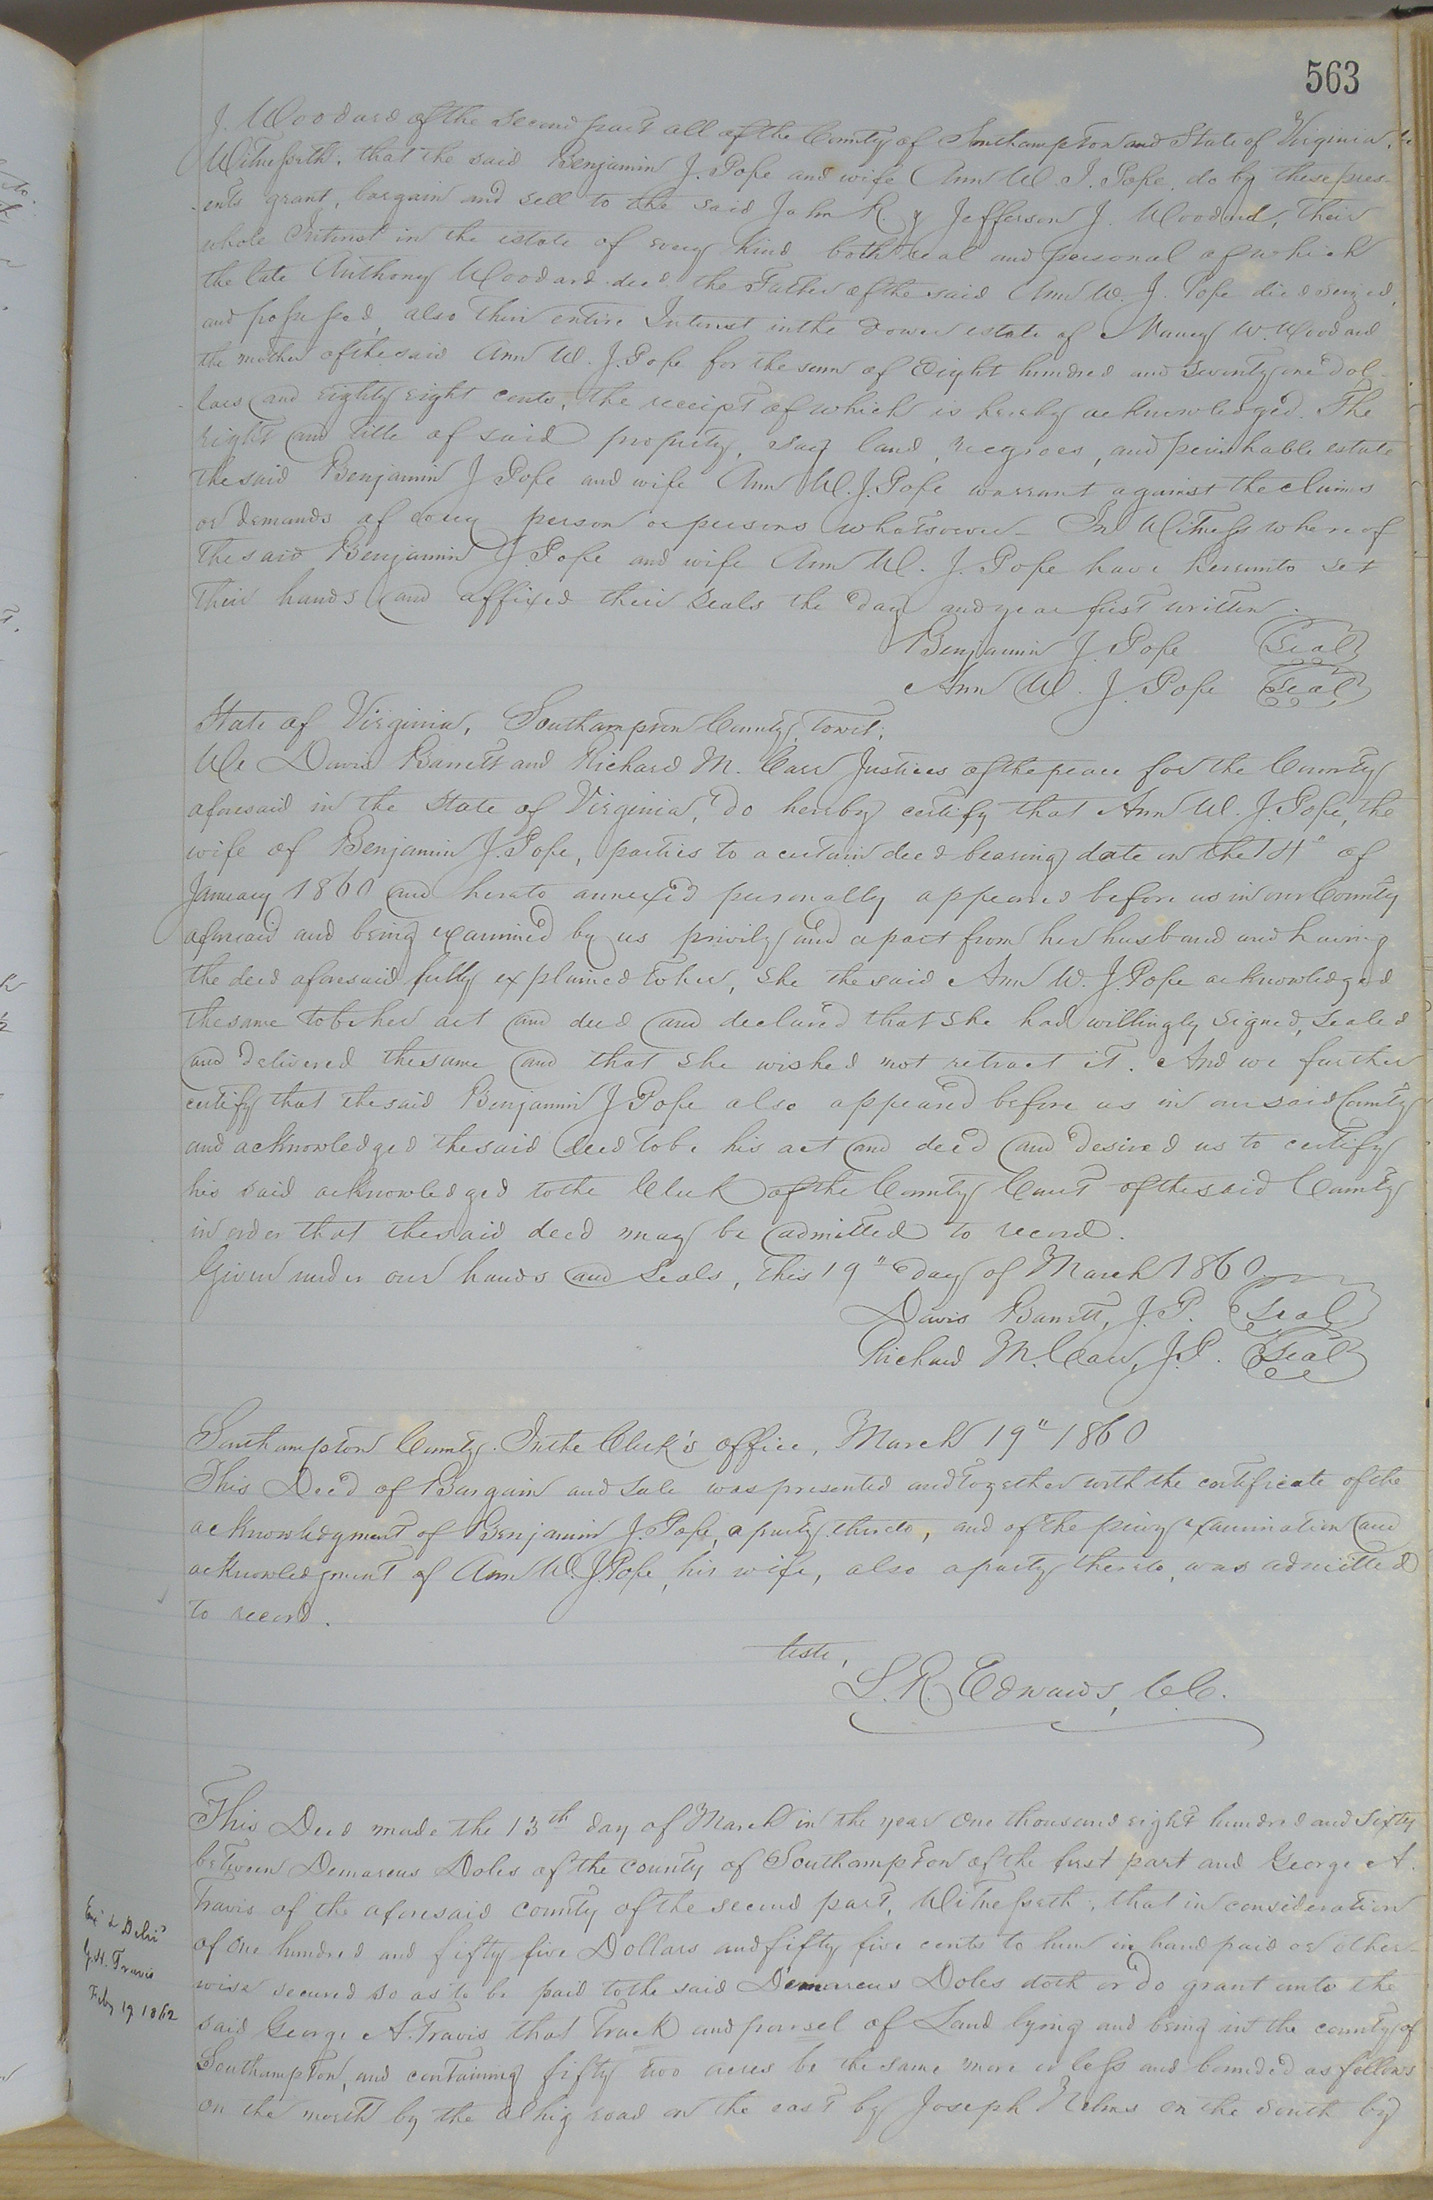 563
J. Woodard of the second part all of the County of Southampton and State of Virginia,
Witnesseth, that the said Benjamin J. Pope and wife Ann W. J. Pope, do by these pres-
ents grant, bargain and sell to the said John R. & Jefferson J. Woodard, their
whole Interest in the estate of every kind both real and personal of which
the late Anthony Woodard decd. the Father of the said Ann W. J. Pope died seized,
and possessed, also their entire Interest in the dower estate of Nancy W. Woodard
the mother of the said Ann W. J. Pope for the sum of Eight hundred and seventy one dol-
lars and Eighty eight cents, the receipt of which is hereby acknowledged. The
right and title of said property, say land, negroes, and perishable estate
the said Benjamin J Pope and wife Ann W. J. Pope warrant against the claims
or demands of every person or persons whatsoever - In Witness whereof
the said Benjamin J. Pope and wife Ann W. J. Pope have hereunto set
their hands and affixed their seals the day and year first written.
Benjamin J. Pope Seal
Ann W. J. Pope Seal
State of Virginia, Southampton County, towit;
We Davis Barrett and Richard M. Carr Justices of the peace for the County
aforesaid in the State of Virginia, do hereby certify that Ann W. J. Pope, the
wife of Benjamin J. Pope, parties to a certain deed bearing date on the 14" of
January 1860 and hereto annexed personally appeared before us in our County
aforesaid and being examined by us privily and apart from her husband and having
the deed aforesaid fully explained to her, she the said Ann W. J. Pope acknowledged
the same to be her act and deed and declared that she had willingly signed, sealed
and delivered the same and that she wished not retract it. And we further
certify that the said Benjamin J Pope also appeared before us in our said County
and acknowledged the said deed to be his act and deed and desired us to certify
his said acknowledged to the Clerk of the County Court of the said County
in order that the said deed may be admitted to record.
Given under our hands and seals, this 19" day of March 1860
Davis Barrett, J. P. Seal
Richard M. Carr, J. P. Seal
Southampton County. In the Clerk's office, March 19" 1860
This Deed of Bargain and Sale was presented and together with the certificate of the
acknowledgment of Benjamin J. Pope, a party thereto, and of the privy examination and
acknowledgment of Ann W. J. Pope, his wife, also a party thereto, was admitted
to record.
teste,
L. R. Edwards, C.C.
This Deed made the 13th day of March in the year One thousand eight hundred and sixty
between Demarcus Doles of the county of Southampton of the first part and George A.
Travis of the aforesaid county of the second part, Witnesseth, that in consideration
of One hundred and fifty five Dollars and fifty five cents to him in hand paid or other-
wise secured so as to be paid to the said Demarcus Doles doth or do grant unto the
said George A. Travis that Track and parsel of Land lying and being in the county of
Southampton, and containing fifty two acres be the same more or less and bounded as follows
on the north by the road on the east by Joseph Nelms on the south by
Exd & Delivd
G. H. Travis
Feby 19 1862